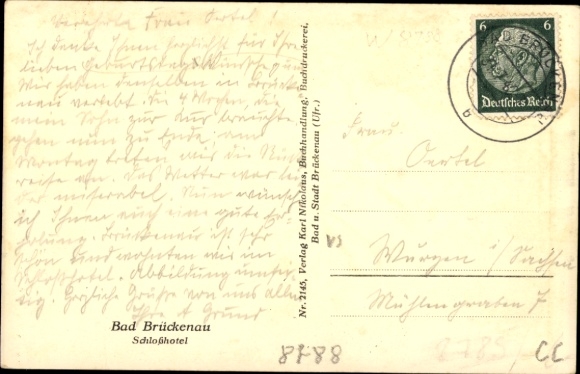 Verehrte Frau Oertel!
Ich danke Ihnen herzlichst für Ihre
lieben Geburtstagswünsche.
Wir haben denselben in Brücke-
nau verlebt. Die 4 Wochen, die
mein Sohn zur Kur brauchte
gehen nun zu Ende; am
Montag treten wir die
reise an. Das Wetter war lei-
der miserabel. Nun wünsche
ich Ihnen auch eine gute Er-
holung. Brückenau ist sehr
schön und wohnten wir im
Schlosshotel. Abbildung umsei-
tig. Herzliche Grüße von uns allen
Ihre A Grund
Bad Brückenau
Schloßhotel
Nr. 2145, Verlag Karl Nikolaus, Buchhandlung, Buchdruckerei,
Bad u. Stadt Brückenau (Ufr.)
6 6
Deutsches Reich
Frau
Oertel
vs
Wurzen i/Sachsen
Mühlengraben 7
8788
2785
CC